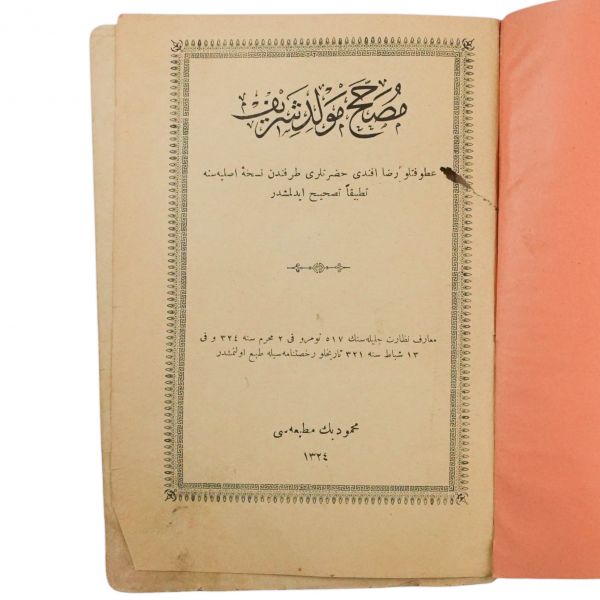 مصحّح مولد شريف
عطوفتلو رضا افندى حضرتلرى طرفندن نسخهٔ اصليه‌سنه
تطبيقاً تصحيح ايدلمشدر
معارف نظارت جليله‌سنك ٥١٧ نومرو فى ٢ محرم سنه ٣٢٤ و فى
١٣ شباط سنه ٣٢١ تاريخلو رخصتنامه‌سيله طبع اولنمشدر
محمود بك مطبعه‌سى
١٣٢٤